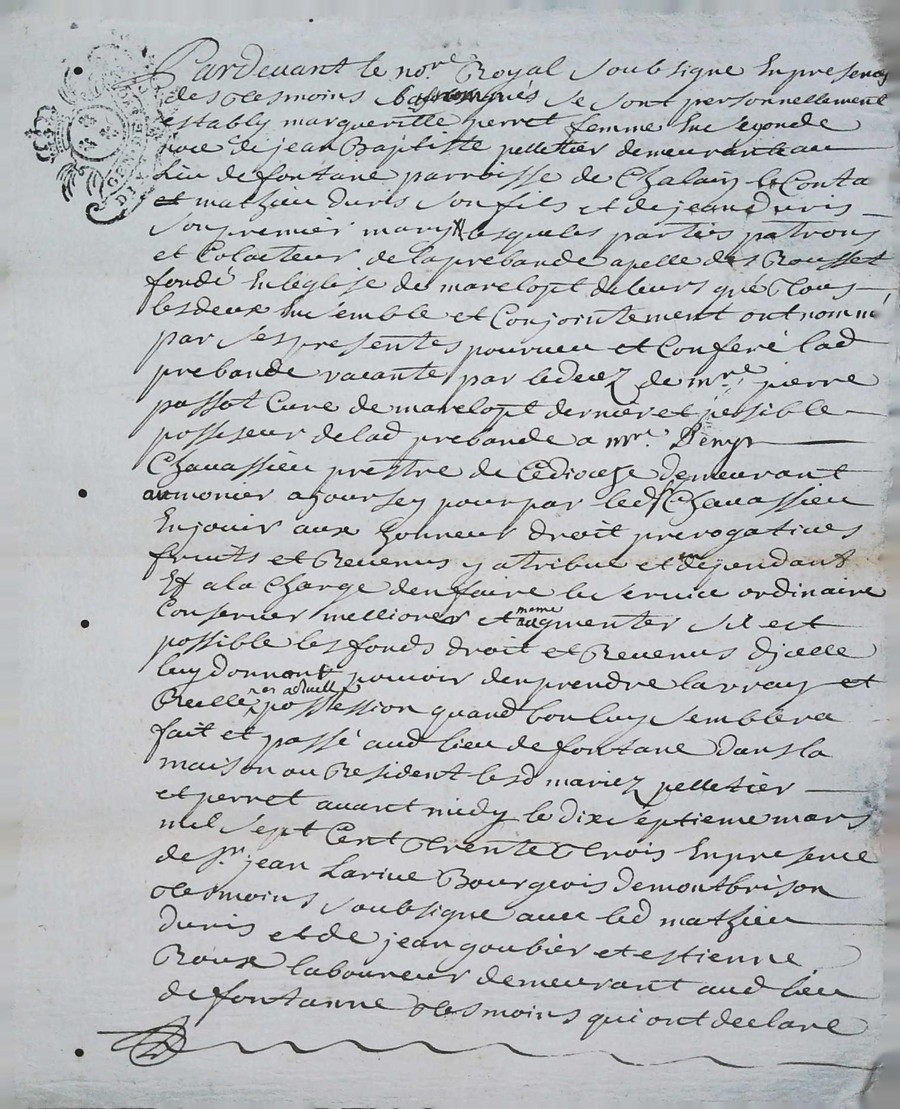 Pardevant le nore Royal soubsigne En presence
des tesmoins bas nommes se sont personnellement
estably margueritte perret femme En segonde
noce de jean Baptiste pelletier demeurante au
Lieu de fontane parroisse de Chalain le Conta
et mathieu duris son fils et de jean duris
son premier mary lesquelles parties patrons
et Colateur de la prebande apelle des Rousset
fondé En léglise de marclopt de leurs gré tous
les deux Ensemble et Conjointement ont nommé
par ses presentes pourveu et Conferé lad
prebande vacante par le decez de mre pierre
passot Curé de marclopt dernier et pesible
possseur de lad prebande a mre Denys
Chavassieu prestre de Cediocese demeurant
aumonier a joursey pour par led sr Chavassieu
En jouir aux honneur droit prerogatives
fruits et Revenus y atribue et en dependant
Et a la Charge den faire le service ordinaire
Conserver melliorer et mesme augmenter sil est
possible les fonds droit et Revenus dicelle
luy donnant pouvoir den prendre la vray et
Reelle actuelle possession quand bon luy semblera
fait et passé aud lieu de fontane dans la
maison ou Resident lesd mariez pelletier
et perret avant midy le dix septieme mars
mil sept Cent trente trois En presence
de sr jean Larive Bourgeois de montbrison
tesmoins soubsigne avec led mathieu
duris et de jean goubier et estienne
Roux laboureur demeurant aud lieu
de fontanne tesmoins qui ont declare